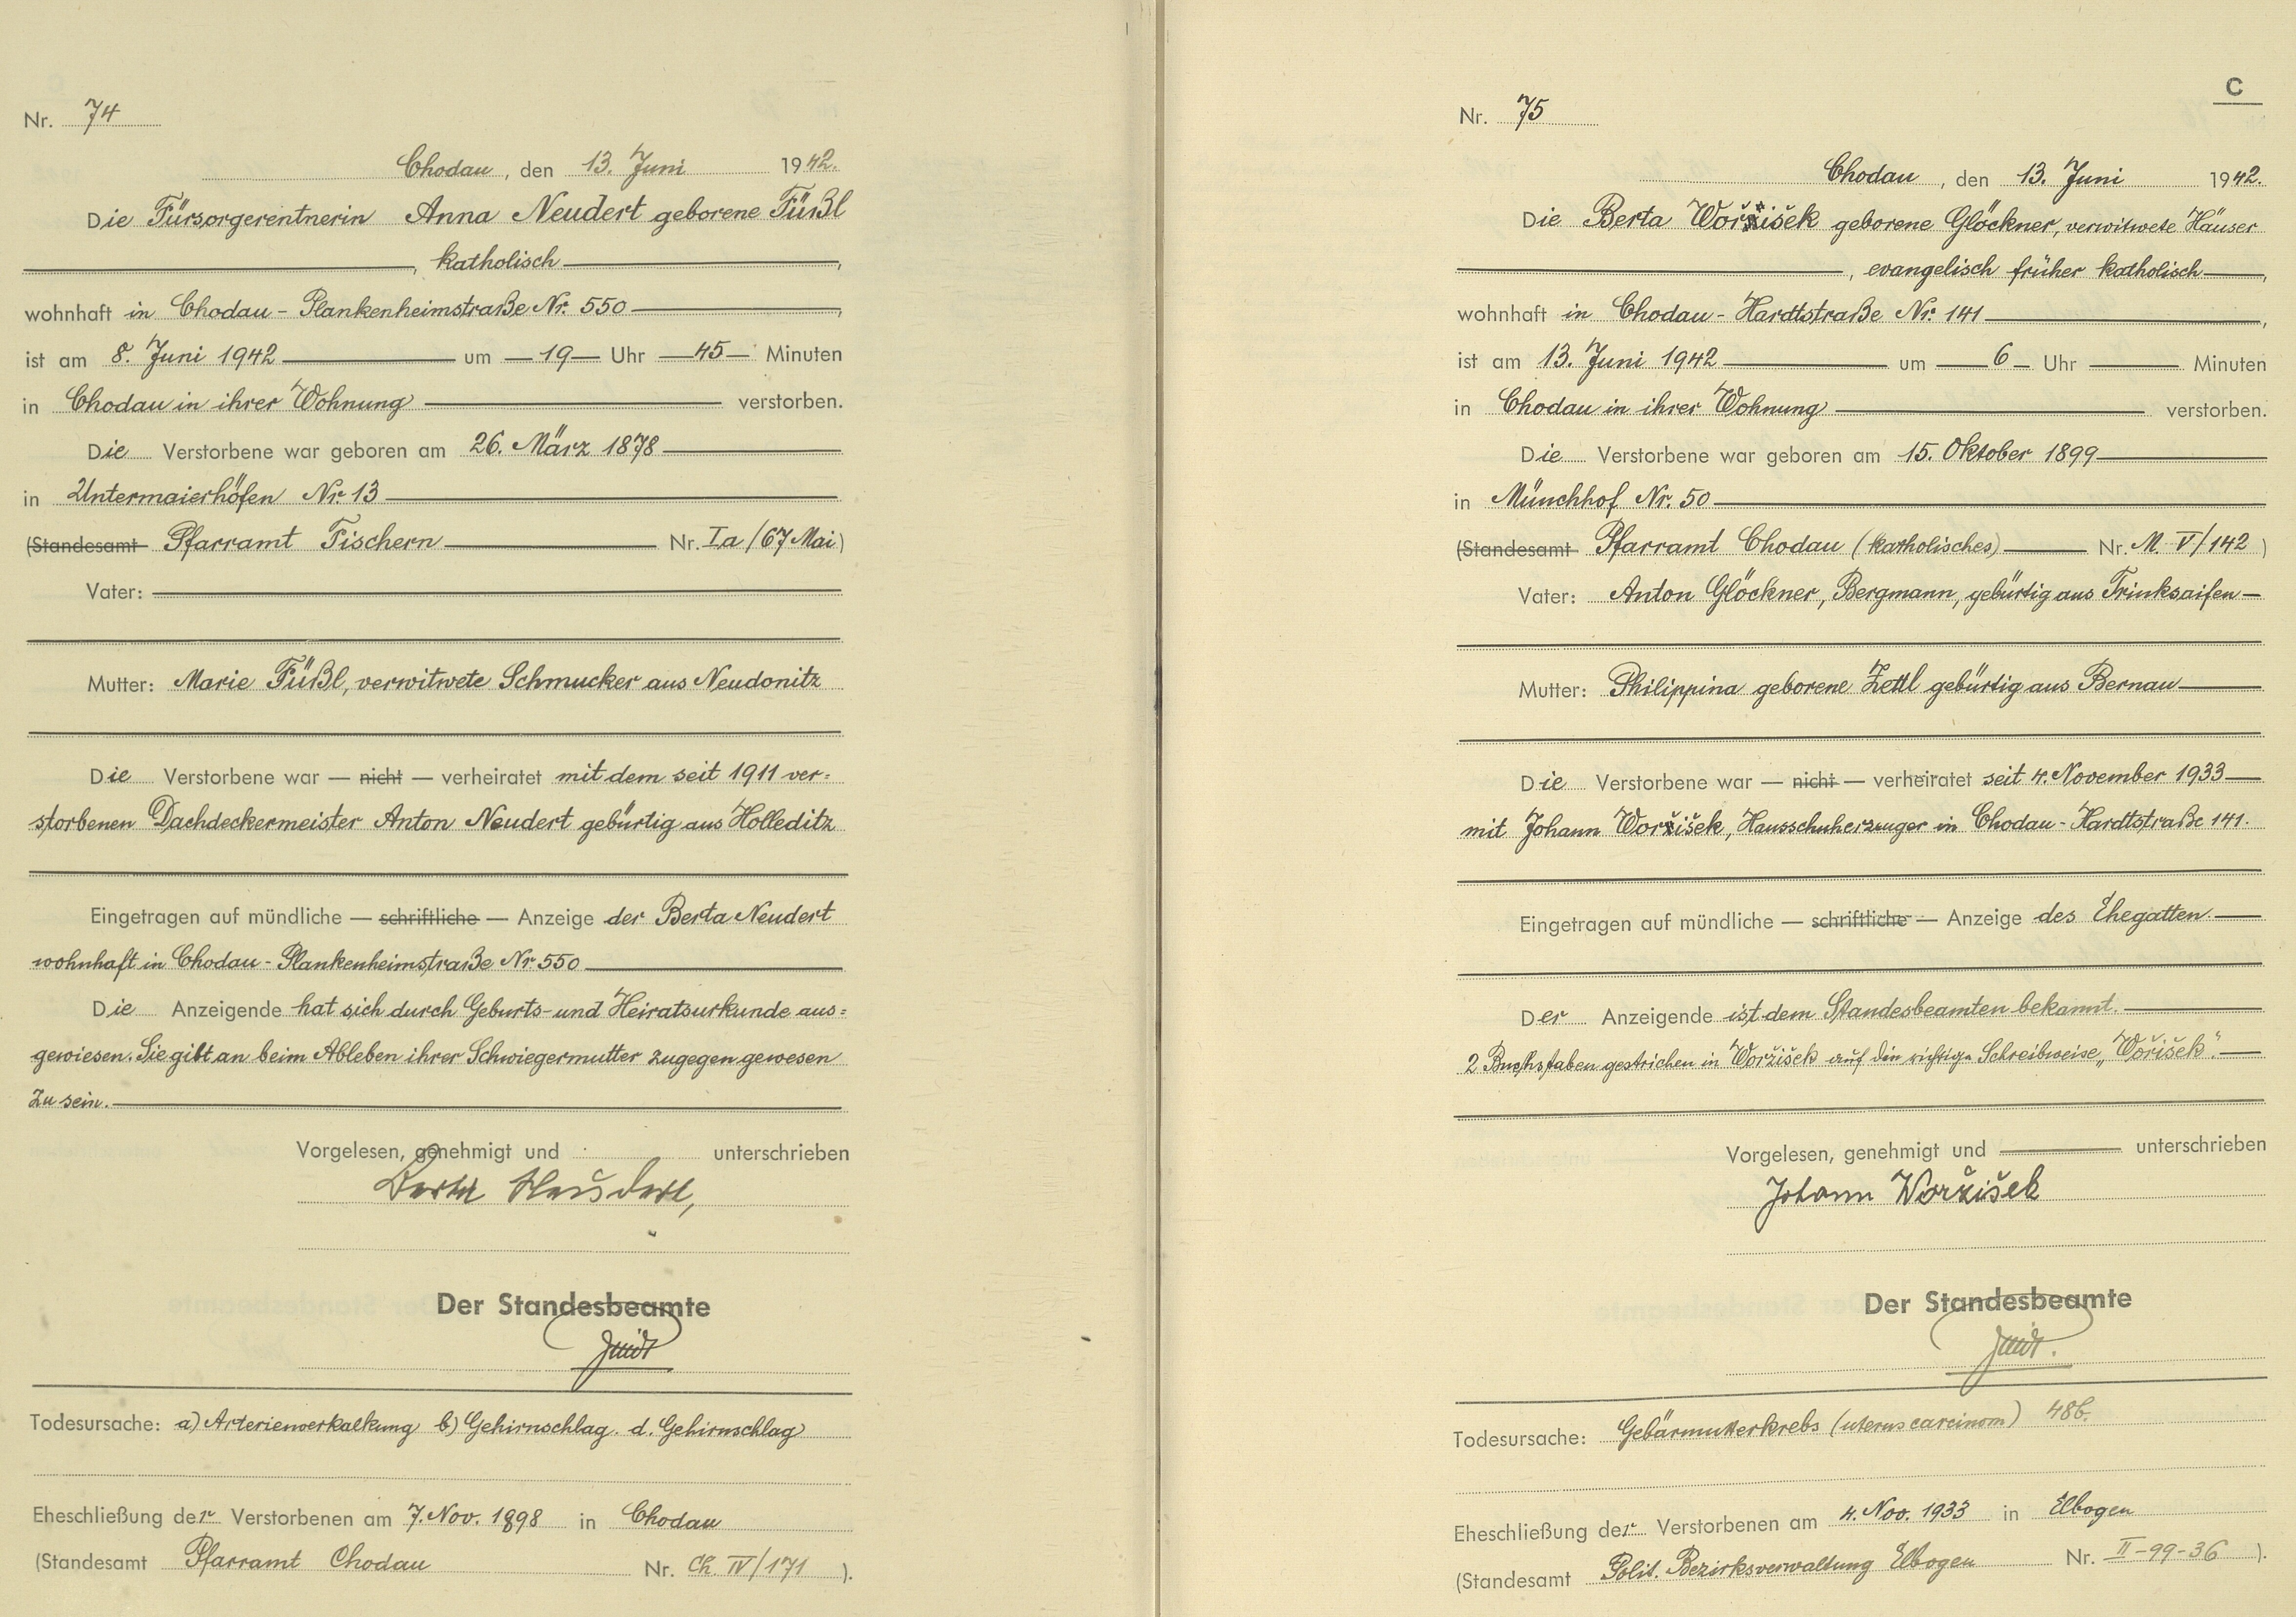 Nr. 74
Chodau, den 13. Juni 1942.
Die Fürsorgerentnerin Anna Neudert geborene Füßl
, katholisch ,
wohnhaft in Chodau - Plankenheimstraße Nr. 550 ,
ist am 8. Juni 1942 um — 19 — Uhr — 45 — Minuten
in Chodau in ihrer Wohnung verstorben.
Die Verstorbene war geboren am 26. März 1878
in Untermaierhöfen Nr. 13
(Standesamt Pfarramt Fischern Nr. Ia/67 Mai)
Vater:
Mutter: Marie Füßl, verwitwete Schmucker aus Neudonitz
Die Verstorbene war — nicht — verheiratet mit dem seit 1911 ver=
storbenen Dachdeckermeister Anton Neudert gebürtig aus Holleditz
Eingetragen auf mündliche — schriftliche — Anzeige der Berta Neudert
wohnhaft in Chodau - Plankenheimstraße Nr 550
Die Anzeigende hat sich durch Geburts- und Heiratsurkunde aus=
gewiesen. Sie gibt an beim Ableben ihrer Schwiegermutter zugegen gewesen
zu sein.
Vorgelesen, genehmigt und unterschrieben
Berta Neudert,
Der Standesbeamte
Todesursache: a) Arterienverkalkung b) Gehirnschlag. d. Gehirnschlag
Eheschließung der Verstorbenen am 7. Nov. 1898 in Chodau
(Standesamt Pfarramt Chodau Nr. Ch. IV/171 ).
C
Nr. 75
Chodau, den 13. Juni 1942.
Die Berta Woržišek geborene Glöckner, verwitwete Häuser
, evangelisch früher katholisch ,
wohnhaft in Chodau - Hardtstraße Nr. 141 ,
ist am 13. Juni 1942 um — 6 — Uhr — Minuten
in Chodau in ihrer Wohnung verstorben.
Die Verstorbene war geboren am 15. Oktober 1899
in Münchhof Nr. 50
(Standesamt Pfarramt Chodau (katholisches) Nr. M. V/142 )
Vater: Anton Glöckner, Bergmann, gebürtig aus Trinksaifen —
Mutter: Philippina geborene Zettl gebürtig aus Bernau
Die Verstorbene war — nicht — verheiratet seit 4. November 1933 —
mit Johann Woržišek, Hausschuherzeuger in Chodau - Hardtstraße 141.
Eingetragen auf mündliche — schriftliche — Anzeige des Ehegatten. —
Der Anzeigende ist dem Standesbeamten bekannt.
2 Buchstaben gestrichen in Woržišek auf die richtige Schreibweise „Woříšek". —
Vorgelesen, genehmigt und — unterschrieben
Johann Woržišek
Der Standesbeamte
Todesursache: Gebärmutterkrebs (uterus carcinom) 48b.
Eheschließung der Verstorbenen am 4. Nov. 1933 in Elbogen
(Standesamt Polit. Bezirksverwaltung Elbogen Nr. II-99-36 ).